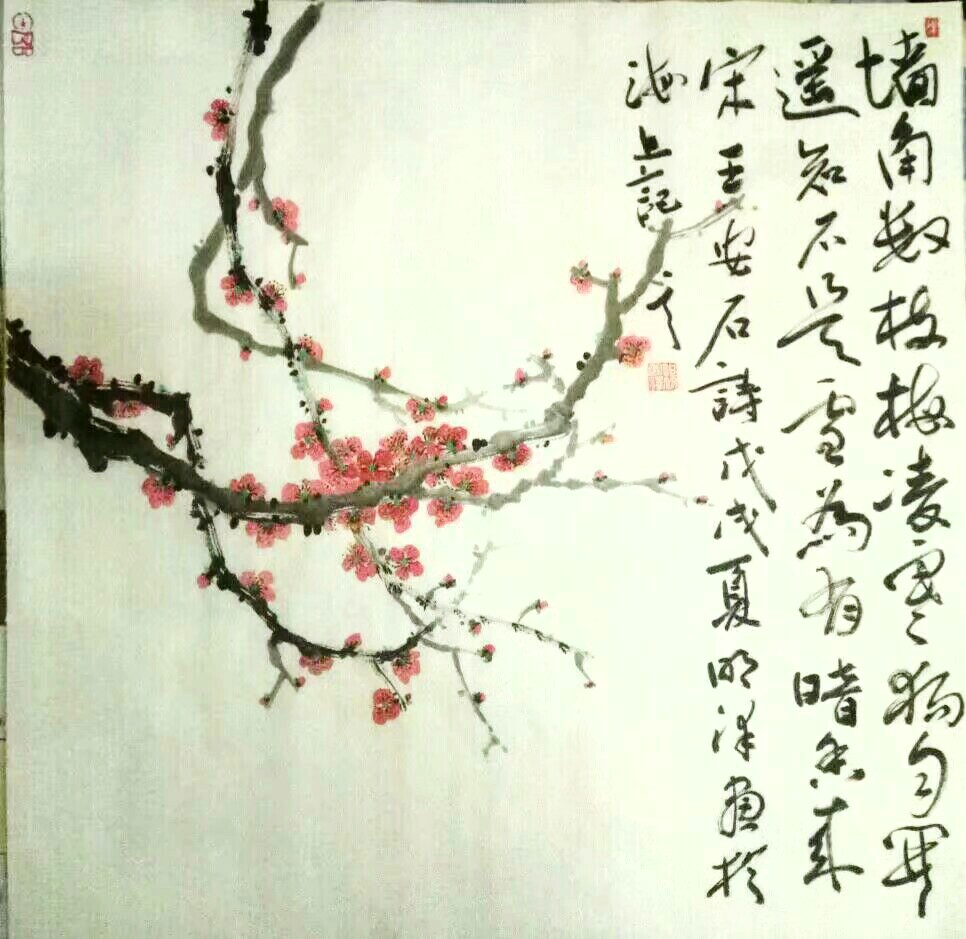 墙角数枝梅凌寒獨自開
遥知不是雪為有暗香来
宋王安石詩戊戌夏明画於
海上記